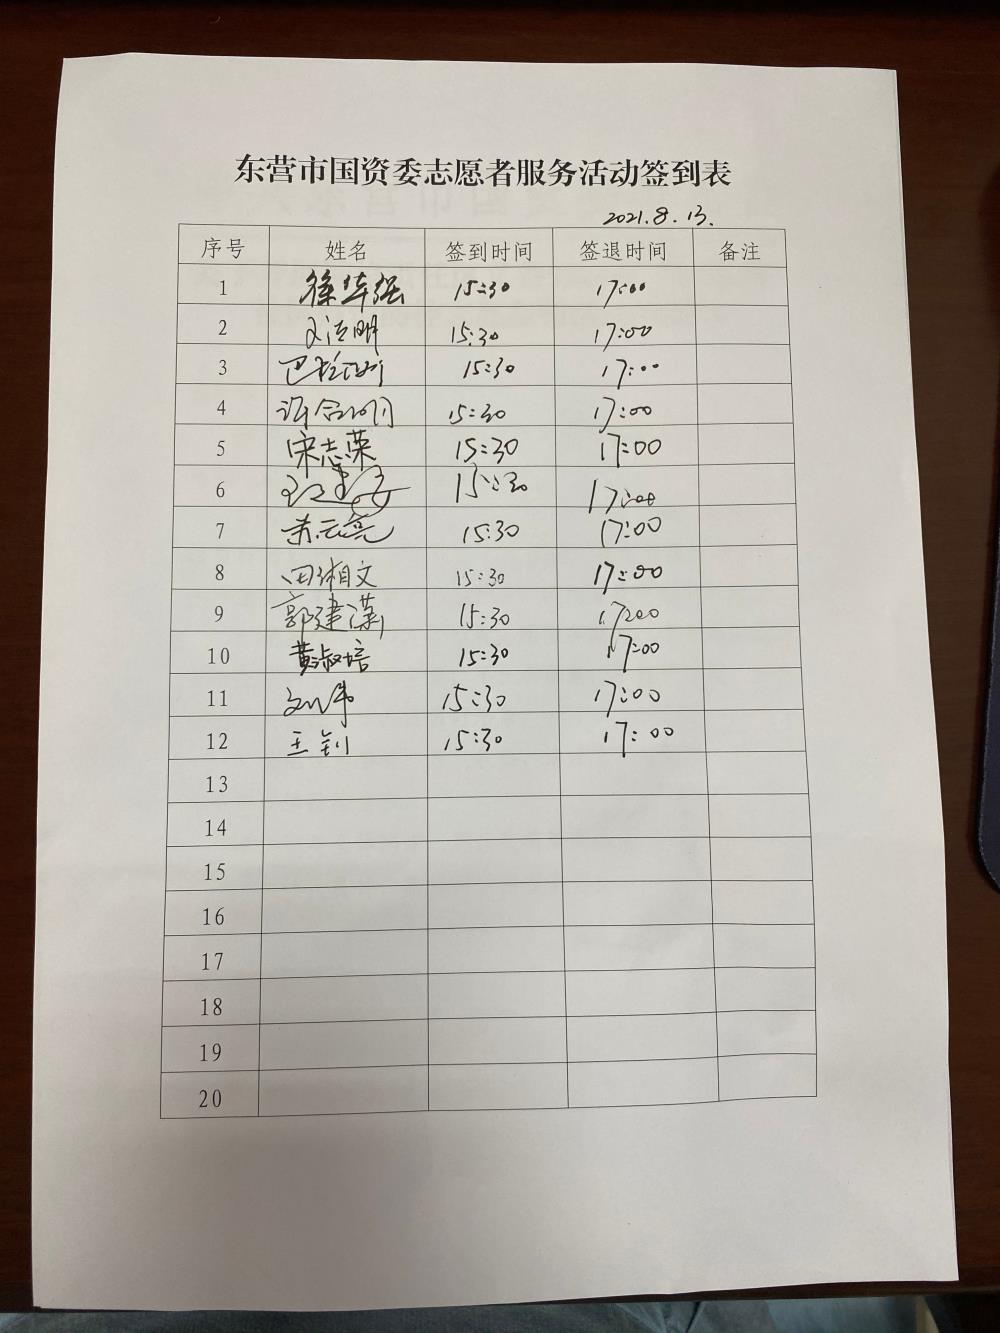 东营市国资委志愿者服务活动签到表
2021.8.13.
序号 姓名 签到时间 签退时间 备注
1 徐华强 15:30 17:00
2 15:30 17:00
3 15:30 17:00
4 15:30 17:00
5 宋志荣 15:30 17:00
6 15:30 17:00
7 苏云亮 15:30 17:00
8 田湘文 15:30 17:00
9 郭建潇 15:30 17:00
10 黄淑培 15:30 17:00
11 刘伟 15:30 17:00
12 王钊 15:30 17:00
13
14
15
16
17
18
19
20